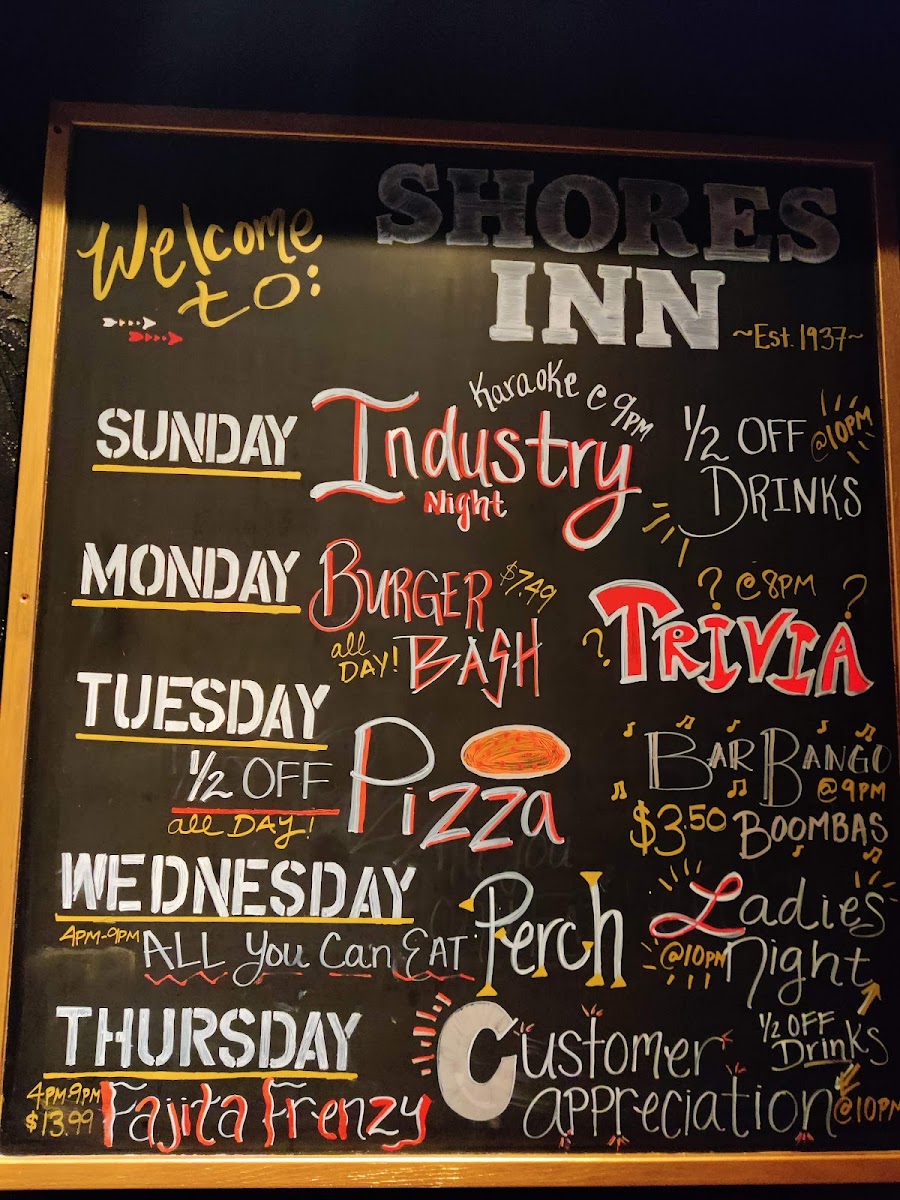 Welcome
to:
SHORES
INN
~Est. 1937~
SUNDAY
Karaoke @ 9pm
Industry
Night
1/2 OFF @10PM
DRINKS
MONDAY
BURGER $7.49
all DAY! BASH
? @8PM ?
? TRIVIA
TUESDAY
1/2 OFF
all DAY!
Pizza
BAR BANGO
@9PM
$3.50 BOOMBAS
WEDNESDAY
4PM-9PM ALL You Can EAT Perch
Ladies
@10PM Night
THURSDAY
4PM-9PM
$13.99 Fajita Frenzy
Customer
appreciation @10PM
1/2 OFF
Drinks